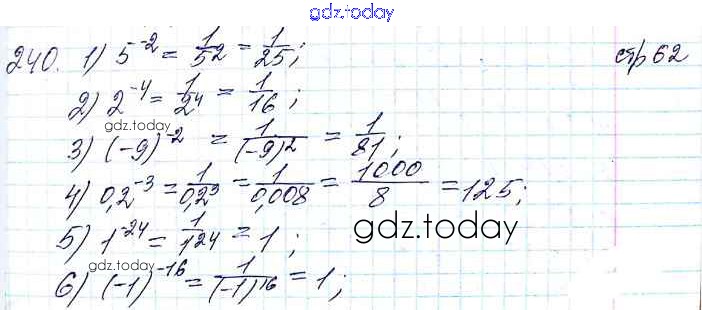 gdz.today
240. 1) 5^-2 = 1/5^2 = 1/25; стр 62
2) 2^-4 = 1/2^4 = 1/16;
gdz.today
3) (-9)^-2 = 1/(-9)^2 = 1/81;
4) 0,2^-3 = 1/0,2^3 = 1/0,008 = 1000/8 = 125;
gdz.today
5) 1^-24 = 1/1^24 = 1;
gdz.today
6) (-1)^-16 = 1/(-1)^16 = 1;